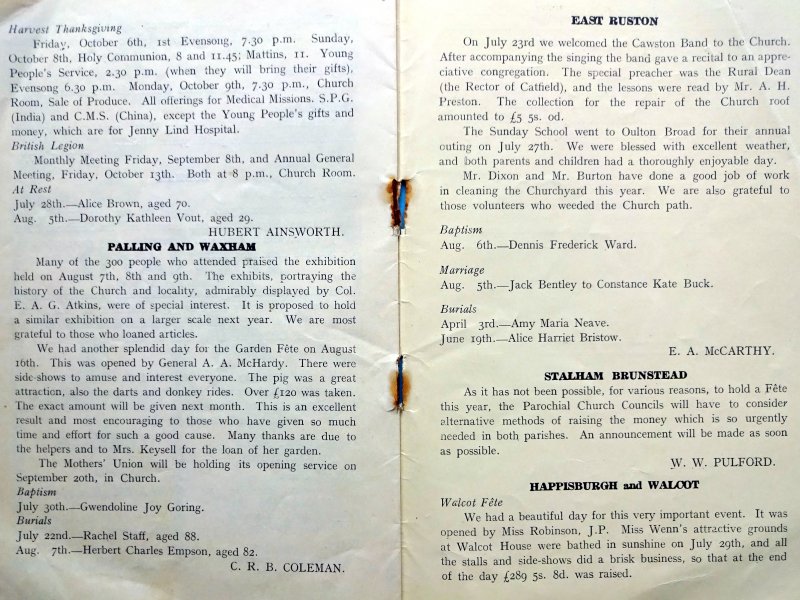 Harvest Thanksgiving
Friday, October 6th, 1st Evensong, 7.30 p.m. Sunday,
October 8th, Holy Communion, 8 and 11.45; Mattins, 11. Young
People's Service, 2.30 p.m. (when they will bring their gifts),
Evensong 6.30 p.m. Monday, October 9th, 7.30 p.m., Church
Room, Sale of Produce. All offerings for Medical Missions. S.P.G.
(India) and C.M.S. (China), except the Young People's gifts and
money, which are for Jenny Lind Hospital.
British Legion
Monthly Meeting Friday, September 8th, and Annual General
Meeting, Friday, October 13th. Both at 8 p.m., Church Room.
At Rest
July 28th.—Alice Brown, aged 70.
Aug. 5th.—Dorothy Kathleen Vout, aged 29.
HUBERT AINSWORTH.
PALLING AND WAXHAM
Many of the 300 people who attended praised the exhibition
held on August 7th, 8th and 9th. The exhibits, portraying the
history of the Church and locality, admirably displayed by Col.
E. A. G. Atkins, were of special interest. It is proposed to hold
a similar exhibition on a larger scale next year. We are most
grateful to those who loaned articles.
We had another splendid day for the Garden Fête on August
16th. This was opened by General A. A. McHardy. There were
side-shows to amuse and interest everyone. The pig was a great
attraction, also the darts and donkey rides. Over £120 was taken.
The exact amount will be given next month. This is an excellent
result and most encouraging to those who have given so much
time and effort for such a good cause. Many thanks are due to
the helpers and to Mrs. Keysell for the loan of her garden.
The Mothers' Union will be holding its opening service on
September 20th, in Church.
Baptism
July 30th.—Gwendoline Joy Goring.
Burials
July 22nd.—Rachel Staff, aged 88.
Aug. 7th.—Herbert Charles Empson, aged 82.
C. R. B. COLEMAN.
EAST RUSTON
On July 23rd we welcomed the Cawston Band to the Church.
After accompanying the singing the band gave a recital to an appre-
ciative congregation. The special preacher was the Rural Dean
(the Rector of Catfield), and the lessons were read by Mr. A. H.
Preston. The collection for the repair of the Church roof
amounted to £5 5s. 0d.
The Sunday School went to Oulton Broad for their annual
outing on July 27th. We were blessed with excellent weather,
and both parents and children had a thoroughly enjoyable day.
Mr. Dixon and Mr. Burton have done a good job of work
in cleaning the Churchyard this year. We are also grateful to
those volunteers who weeded the Church path.
Baptism
Aug. 6th.—Dennis Frederick Ward.
Marriage
Aug. 5th.—Jack Bentley to Constance Kate Buck.
Burials
April 3rd.—Amy Maria Neave.
June 19th.—Alice Harriet Bristow.
E. A. McCARTHY.
STALHAM BRUNSTEAD
As it has not been possible, for various reasons, to hold a Fête
this year, the Parochial Church Councils will have to consider
alternative methods of raising the money which is so urgently
needed in both parishes. An announcement will be made as soon
as possible.
W. W. PULFORD.
HAPPISBURGH and WALCOT
Walcot Fête
We had a beautiful day for this very important event. It was
opened by Miss Robinson, J.P. Miss Wenn's attractive grounds
at Walcot House were bathed in sunshine on July 29th, and all
the stalls and side-shows did a brisk business, so that at the end
of the day £289 5s. 8d. was raised.